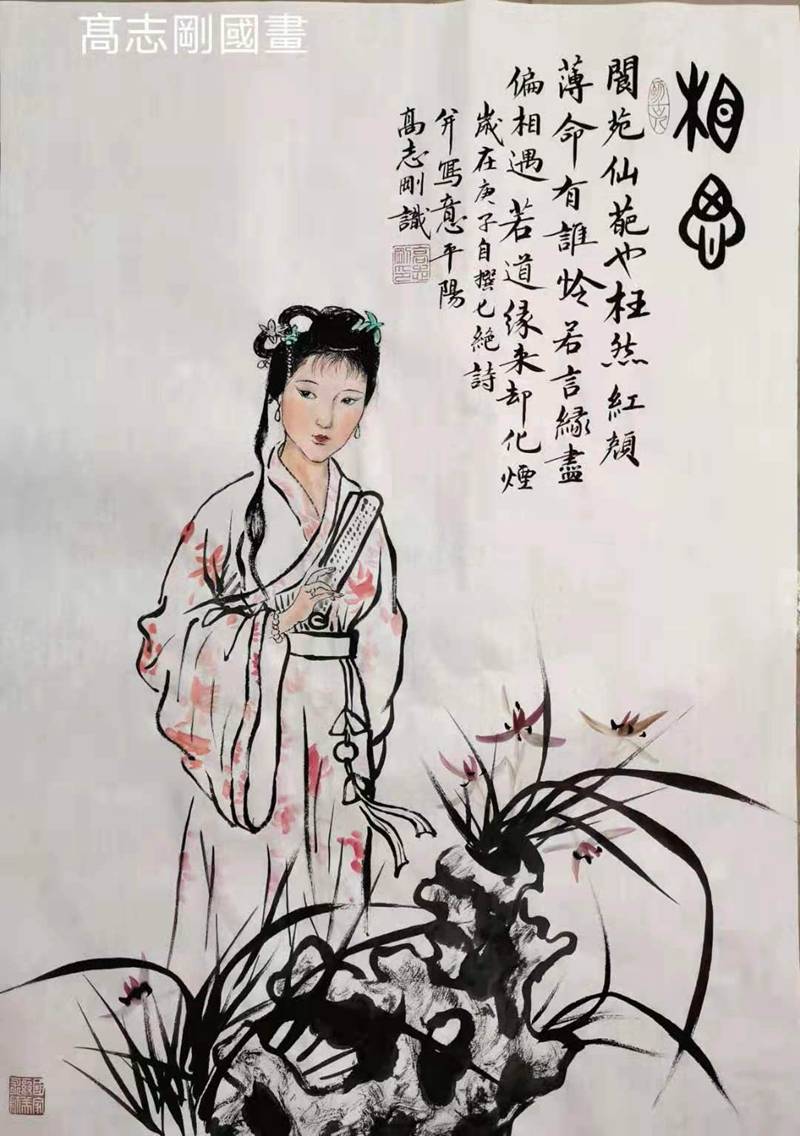 髙志剛國畫
相思
閬苑仙葩也枉然紅顏
薄命有誰怜若言緣盡
偏相遇若道緣来却化煙
歲在庚子自撰七絶詩
并寫意平陽
髙志剛識